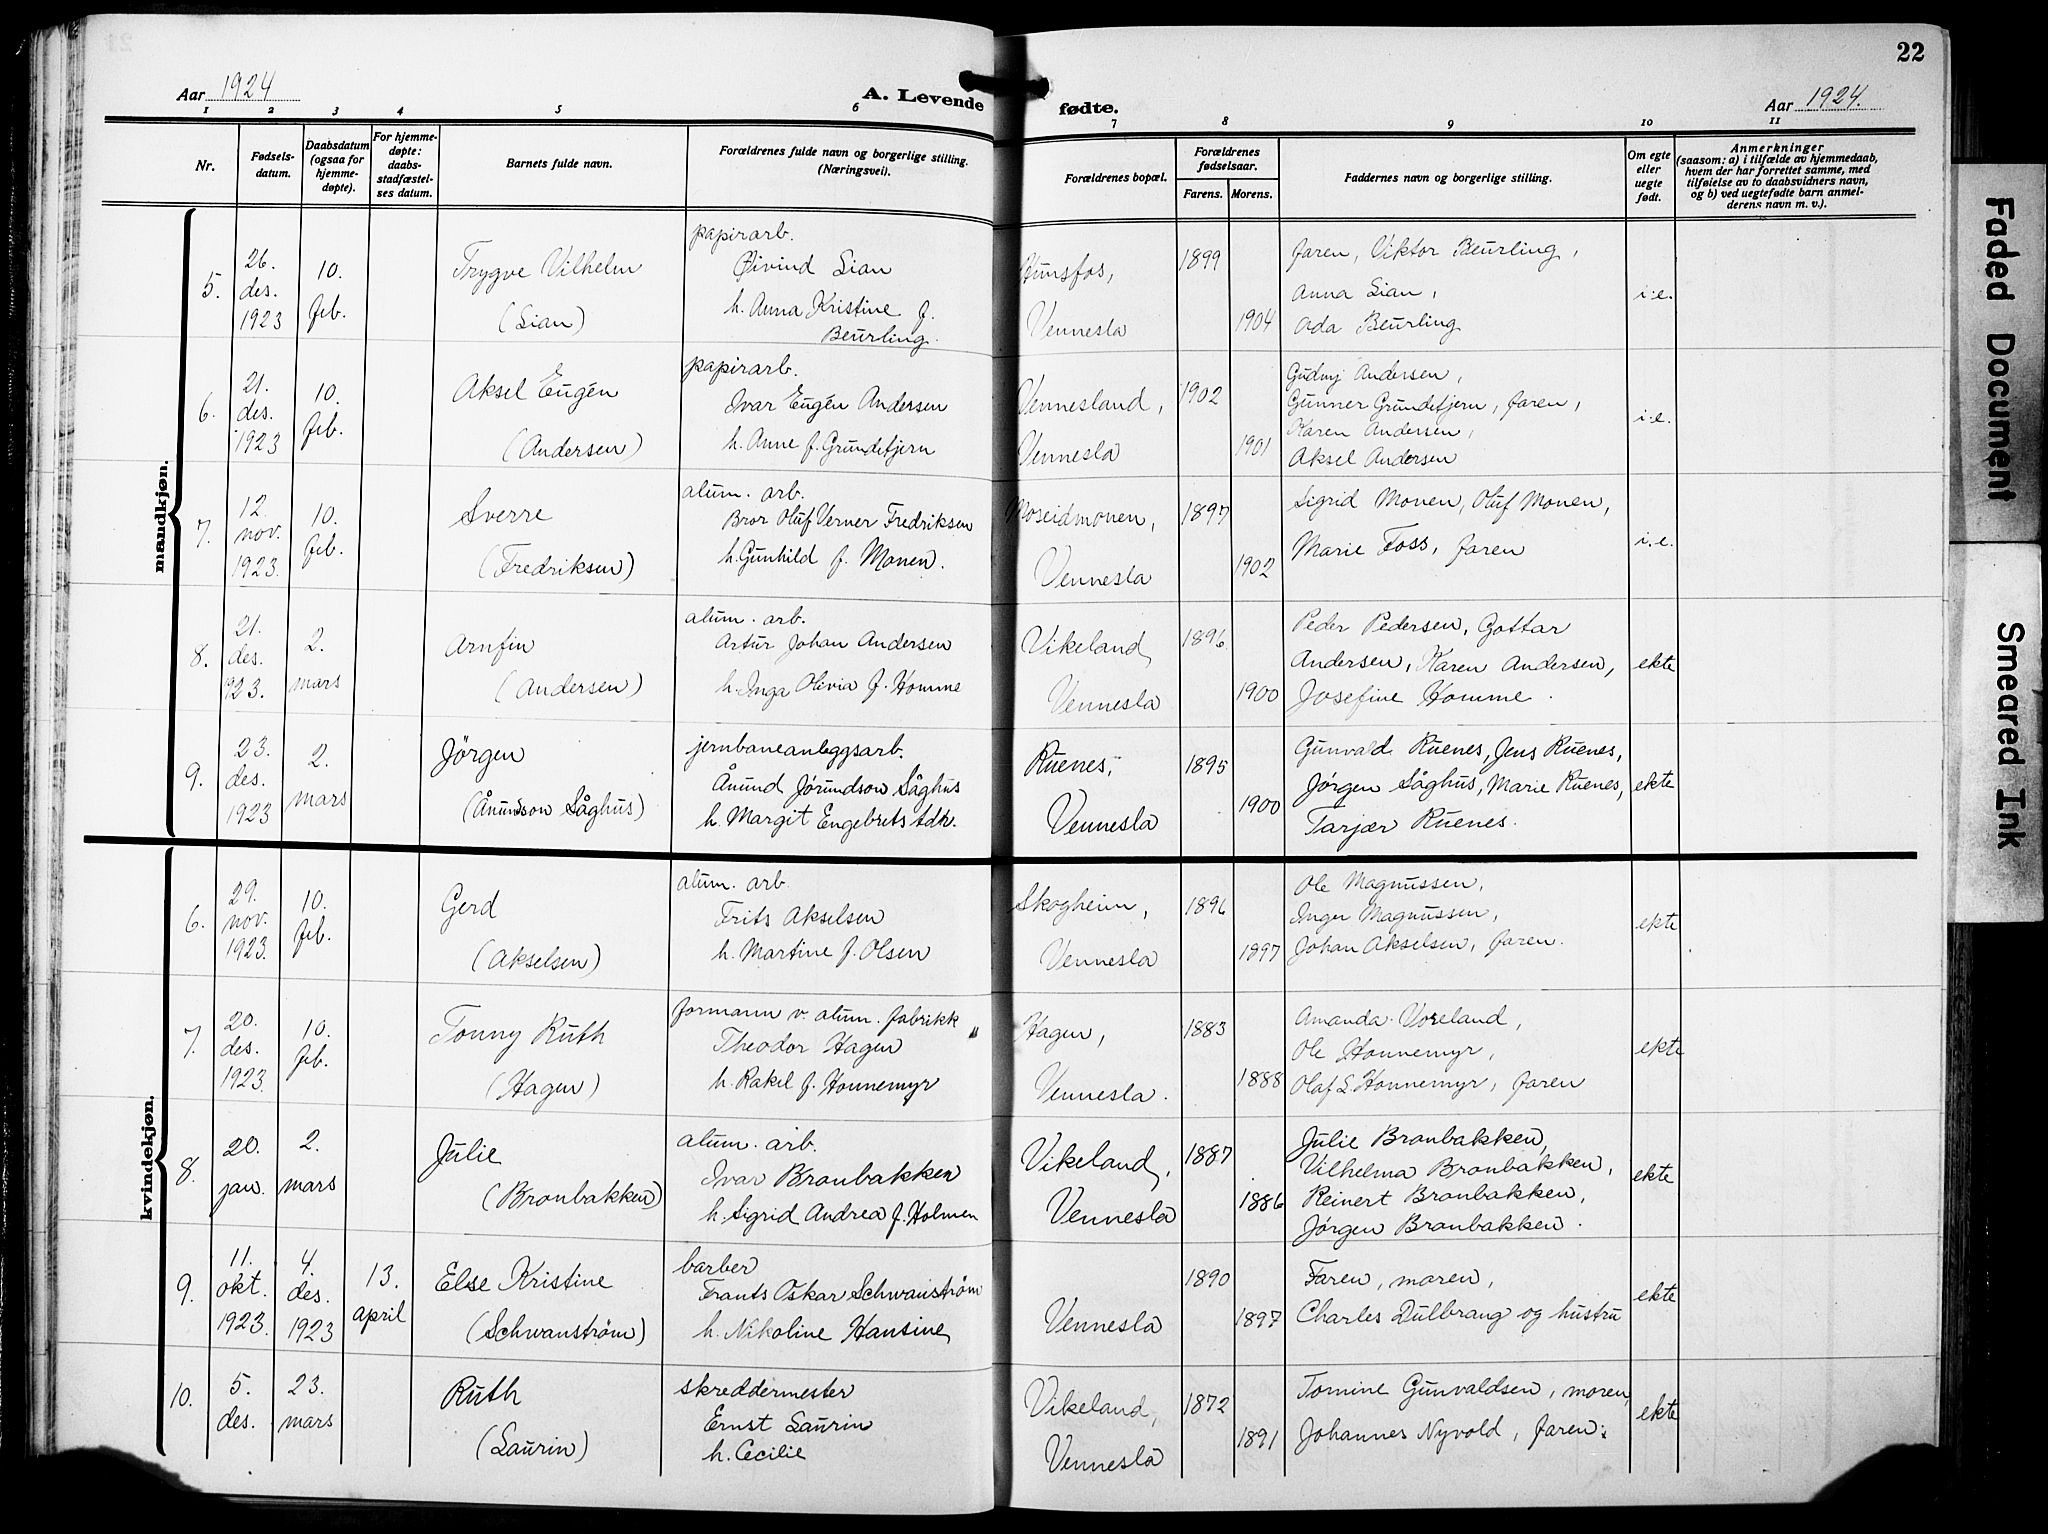 22
Aar 1924
A. Levende fødte.
Aar 1924.
1 2 3 4 5 6 7 8 9 10 11
Nr.
Fødsels-
datum.
Daabsdatum
(ogsaa for
hjemme-
døpte).
For hjemme-
døpte:
daabs-
stadfæstel-
ses datum.
Barnets fulde navn.
Forældrenes fulde navn og borgerlige stilling.
(Næringsvei).
Forældrenes bopæl.
Forældrenes
fødselsaar.
Farens. Morens.
Faddernes navn og borgerlige stilling.
Om egte
eller
uegte
født.
Anmerkninger
(saasom: a) i tilfælde av hjemmedaab,
hvem der har forrettet samme, med
tilføielse av to daabsvidners navn,
og b) ved uegtefødte barn anmel-
derens navn m. v.).
mandkjøn.
5.
26.
des.
1923
10.
feb.
Trygve Vilhelm
(Lian)
papirarb.
Øivind Lian
h. Anna Kristine f.
Beurling.
Hunsfos,
Vennesla
1899
1904
Faren, Viktor Beurling,
Anna Lian,
Ada Beurling
i.e.
6.
21.
des.
1923
10.
feb.
Aksel Eugén
(Andersen)
papirarb.
Ivar Eugén Andersen
h. Anne f. Grundetjern
Vennesland,
Vennesla
1902
1901
Gudny Andersen,
Gunner Grundetjern, faren,
Karen Andersen,
Aksel Andersen
i.e.
7.
12.
nov.
1923.
10.
feb.
Sverre
(Fredriksen)
alum. arb.
Bror Oluf Verner Fredriksen
h. Gunhild f. Monen.
Moseidmonen,
Vennesla
1897
1902
Sigrid Monen, Oluf Monen,
Marie Foss, faren
i.e.
8.
21.
des.
1923.
2.
mars
Arnfin
(Andersen)
alum. arb.
Artur Johan Andersen
h. Inga Olivia f. Homme
Vikeland,
Vennesla
1896
1900
Peder Pedersen, Gottar
Andersen, Karen Andersen,
Josefine Homme.
ekte
9.
23.
des.
1923
2.
mars
Jörgen
(Ånundson Såghus)
jernbaneanleggsarb.
Ånund Jørundson Såghus
h. Margit Engebrets tdh.
Ruenes,
Vennesla
1895
1900
Gunvald Ruenes, Jens Ruenes,
Jörgen Såghus, Marie Ruenes,
Tarjær Ruenes.
ekte
kvindekjøn.
6.
29.
nov.
1923.
10.
feb.
Gerd
(Akselsen)
alum. arb.
Frits Akselsen
h. Martine f. Olsen
Skogheim,
Vennesla
1896
1897
Ole Magnussen,
Inger Magnussen,
Johan Akselsen, faren.
ekte
7.
20.
des.
1923.
10.
feb.
Tonny Ruth
(Hagen)
formann v. alum. fabrikk
Theodor Hagen
h. Rakel f. Honnemyr
Hagen,
Vennesla.
1883
1888
Amanda Voreland,
Ole Honnemyr,
Olaf L Honnemyr, faren
ekte
8.
20.
jan.
2.
mars
Julie
(Bronbakken)
alum. arb.
Ivar Bronbakken
h. Sigrid Andrea f. Holmen
Vikeland,
Vennesla
1887
1886
Julie Bronbakken,
Vilhelma Bronbakken,
Reinert Bronbakken,
Jørgen Bronbakken.
ekte
9.
11.
okt.
1923.
4.
des.
1923
13.
april
Else Kristine
(Schwanström)
barber
Frants Oskar Schwanström
h. Nikoline Hansine
Vennesla
1890
1897
Faren, moren,
Charles Dulbrang og hustru
ekte
10.
5.
des.
23.
mars
Ruth
(Laurin)
skreddermester
Ernst Laurin
h. Cecilie
Vikeland,
Vennesla
1872
1891
Tomine Gunvaldsen, moren,
Johannes Nyvold, faren.
ekte
Faded Document
Smeared Ink